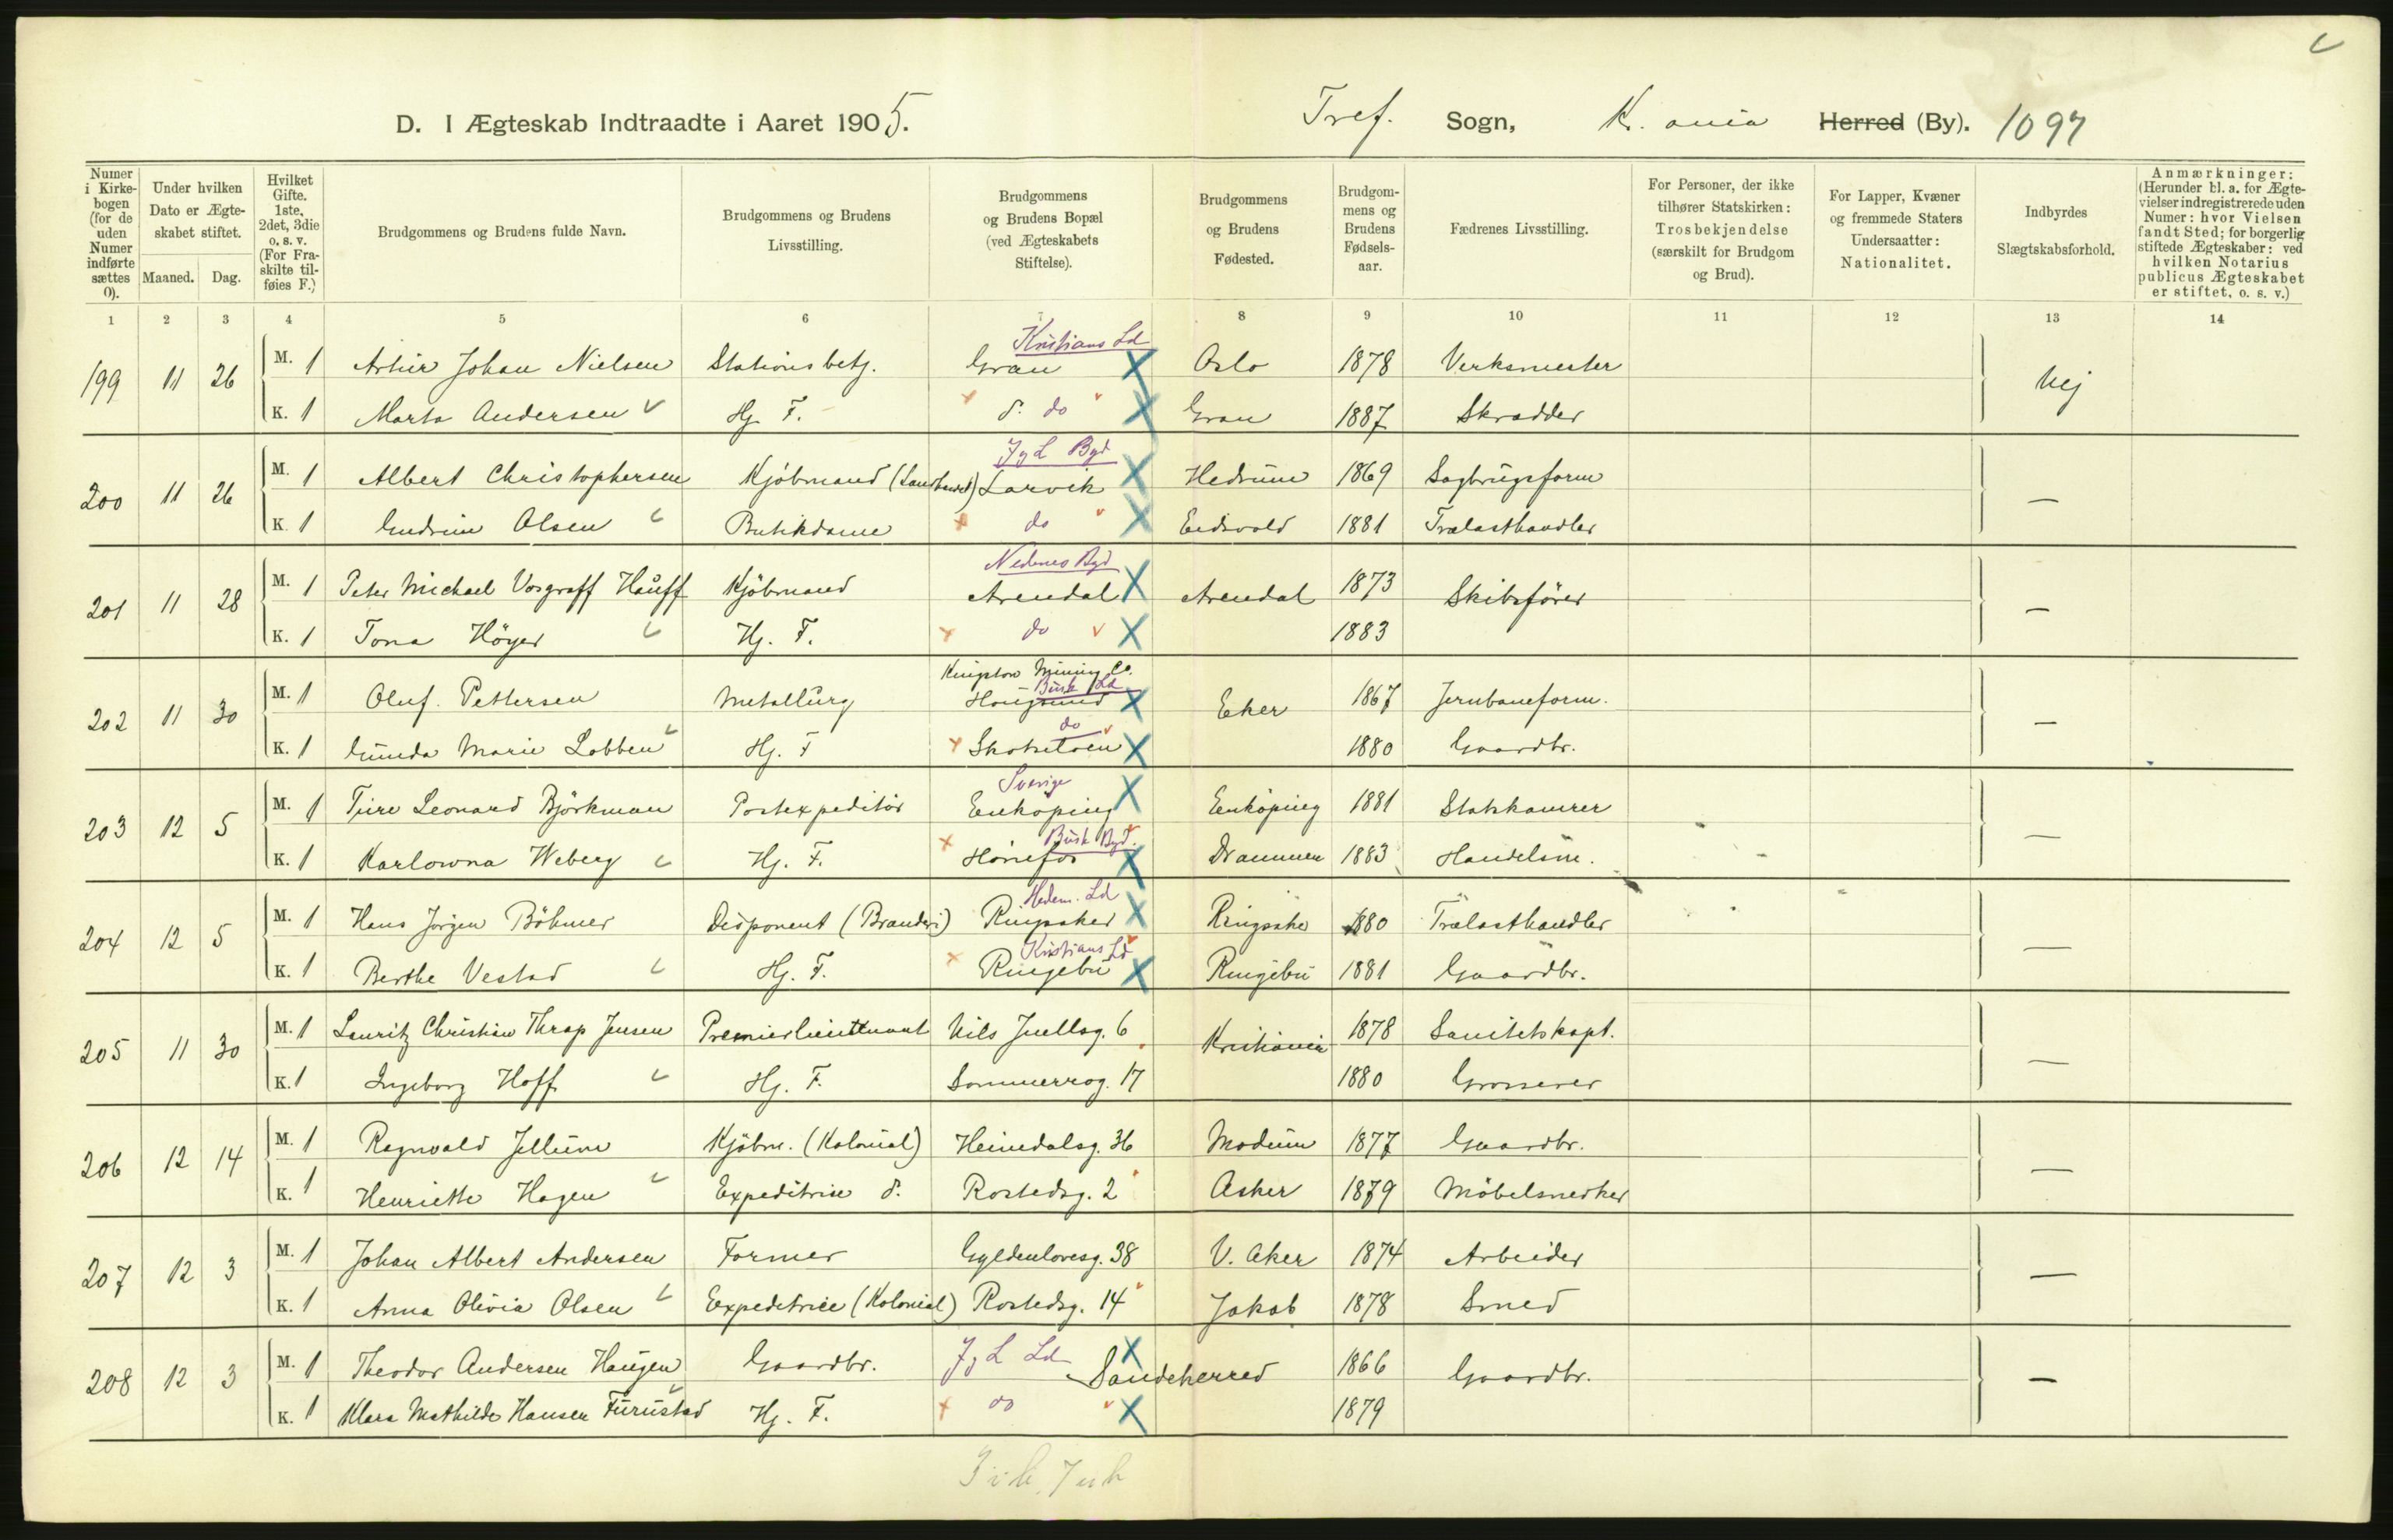 D. I Ægteskab Indtraadte i Aaret 1905. Tref. Sogn, Kr. ania Herred (By). 1097
Numer i Kirkebogen (for de uden Numer indførte sættes 0).
Under hvilken Dato er Ægteskabet stiftet.
Maaned. Dag.
Hvilket Gifte. 1ste, 2det, 3die o. s. v. (For Fraskilte tilføies F.)
Brudgommens og Brudens fulde Navn.
Brudgommens og Brudens Livsstilling.
Brudgommens og Brudens Bopæl (ved Ægteskabets Stiftelse).
Brudgommens og Brudens Fødested.
Brudgommens og Brudens Fødselsaar.
Fædrenes Livsstilling.
For Personer, der ikke tilhører Statskirken: Trosbekjendelse (særskilt for Brudgom og Brud).
For Lapper, Kvæner og fremmede Staters Undersaatter: Nationalitet.
Indbyrdes Slægtskabsforhold.
Anmærkninger: (Herunder bl. a. for Ægtevielser indregistrerede uden Numer: hvor Vielsen fandt Sted; for borgerlig stiftede Ægteskaber: ved hvilken Notarius publicus Ægteskabet er stiftet, o. s. v.)
1 2 3 4 5 6 7 8 9 10 11 12 13 14
Kristians Ld
199 11 26 M. 1 Artur Johan Nielsen Stationsbetj. Gran Oslo 1878 Verksmester Nej
K. 1 Marta Andersen Hj. F. d. do Gran 1887 Skrædder
J & L Byd
200 11 26 M. 1 Albert Christophersen Kjöbmand (Landhandl) Larvik Hedrum 1869 Sagbrugsform —
K. 1 Gudrun Olsen Butikdame do Eidsvold 1881 Trælasthandler
Nedenes Byd
201 11 28 M. 1 Peter Michael Vosgraff Hauff Kjöbmand Arendal Arendal 1873 Skibsförer —
K. 1 Tona Höyer Hj. F. do 1883
Kingston Mining Co.
Busk Ld
202 11 30 M. 1 Oluf Pettersen Metallurg Hougsund Eker 1867 Jernbaneform. —
do
K. 1 Gunda Marie Lobben Hj. F Skotselven 1880 Gaardbr.
Sverige
203 12 5 M. 1 Ture Leonard Björkman Postexpeditör Enköping Enköping 1881 Statskamrer —
Busk Byd.
K. 1 Karlowna Weberg Hj. F. Hönefos Drammen 1883 Handelsm.
Hedem. Ld
204 12 5 M. 1 Hans Jörgen Böhmer Disponent (Branderi) Ringsaker Ringsake 1880 Trælasthandler —
Kristians Ld
K. 1 Berthe Vestad Hj. F. Ringebu Ringebu 1881 Gaardbr.
205 11 30 M. 1 Lauritz Christian Thrap Jensen Premierlieutnant Nils Juellsg. 6 Kristiania 1878 Sanitetskapt. —
K. 1 Ingeborg Hoff Hj. F. Sommerrog. 17 1880 Grosserer
206 12 14 M. 1 Ragnvald Jellum Kjöbm. (Kolonial) Heimdalsg. 36 Modum 1877 Gaardbr. —
K. 1 Henriette Hagen Expeditrise d. Rostedsg. 2 Asker 1879 Möbelsnedker
207 12 3 M. 1 Johan Albert Andersen Former Gyldenlovesg. 38 V. Aker 1874 Arbeider —
K. 1 Anna Olivia Olsen Expeditrice (Kolonial) Rostedsg. 14 Jakob 1878 Smed
208 12 3 M. 1 Theodor Andersen Haugen Gaardbr. J & L Ld Sandeherred 1866 Gaardbr. —
K. 1 Klara Mathilde Hansen Furustad Hj. F. do 1879